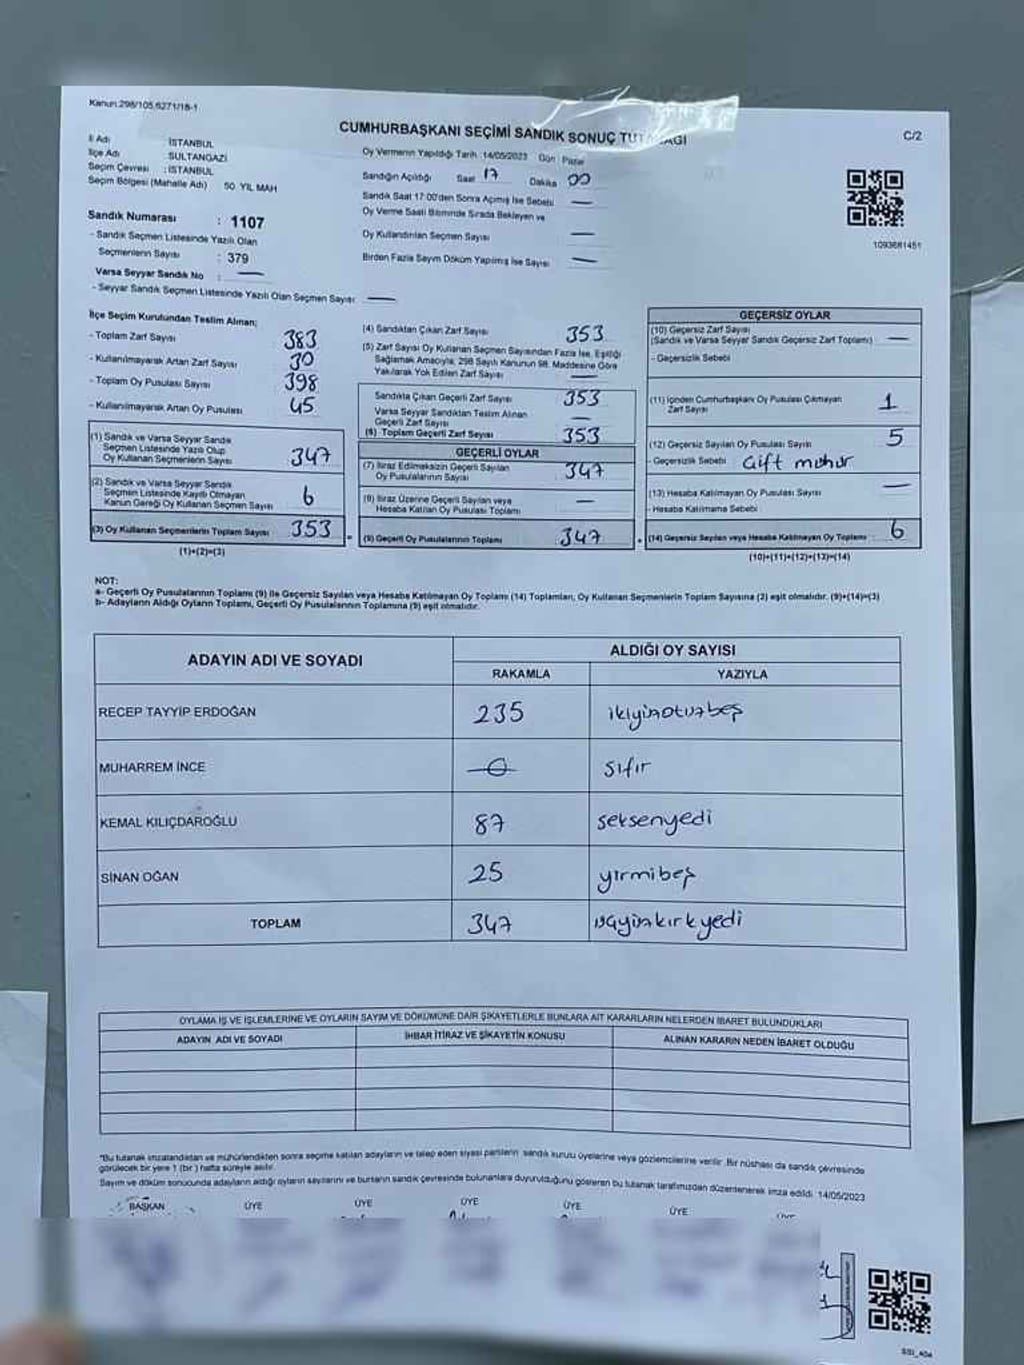 Kanun:298/105,6271/18-1
CUMHURBAŞKANI SEÇİMİ SANDIK SONUÇ
C/2
İl Adı : İSTANBUL
İlçe Adı : SULTANGAZİ
Seçim Çevresi : İSTANBUL
Seçim Bölgesi (Mahalle Adı) 50. YIL MAH
Sandık Numarası : 1107
- Sandık Seçmen Listesinde Yazılı Olan
Seçmenlerin Sayısı : 379
Varsa Seyyar Sandık No : —
- Seyyar Sandık Seçmen Listesinde Yazılı Olan Seçmen Sayısı —
Oy Vermenin Yapıldığı Tarih :14/05/2023 Gün : Pazar
Sandığın Açıldığı Saat 17 Dakika 00
Sandık Saat 17:00'den Sonra Açımış İse Sebebi —
Oy Verme Saati Bitiminde Sırada Bekleyen ve
Oy Kullandırılan Seçmen Sayısı —
Birden Fazla Sayım Döküm Yapılmış İse Sayısı —
1093681451
İlçe Seçim Kurulundan Teslim Alınan;
- Toplam Zarf Sayısı 383
- Kullanılmayarak Artan Zarf Sayısı 30
- Toplam Oy Pusulası Sayısı 398
- Kullanılmayarak Artan Oy Pusulası 45
(1) Sandık ve Varsa Seyyar Sandık
Seçmen Listesinde Yazılı Olup
Oy Kullanan Seçmenlerin Sayısı 347
(2) Sandık ve Varsa Seyyar Sandık
Seçmen Listesinde Kayıtlı Olmayan
Kanun Gereği Oy Kullanan Seçmen Sayısı 6
(3) Oy Kullanan Seçmenlerin Toplam Sayısı 353
(1)+(2)=(3)
(4) Sandıktan Çıkan Zarf Sayısı 353
(5) Zarf Sayısı Oy Kullanan Seçmen Sayısından Fazla İse, Eşitliği
Sağlamak Amacıyla, 298 Sayılı Kanunun 98. Maddesine Göre
Yakılarak Yok Edilen Zarf Sayısı —
Sandıkta Çıkan Geçerli Zarf Sayısı 353
Varsa Seyyar Sandıktan Teslim Alınan
Geçerli Zarf Sayısı —
(6) Toplam Geçerli Zarf Sayısı 353
GEÇERLİ OYLAR
(7) İtiraz Edilmeksizin Geçerli Sayılan
Oy Pusulalarının Sayısı 347
(8) İtiraz Üzerine Geçerli Sayılan veya
Hesaba Katılan Oy Pusulası Toplamı —
(9) Geçerli Oy Pusulalarının Toplamı 347
GEÇERSİZ OYLAR
(10) Geçersiz Zarf Sayısı
(Sandık ve Varsa Seyyar Sandık Geçersiz Zarf Toplamı) —
- Geçersizlik Sebebi
(11) İçinden Cumhurbaşkanı Oy Pusulası Çıkmayan
Zarf Sayısı 1
(12) Geçersiz Sayılan Oy Pusulası Sayısı 5
- Geçersizlik Sebebi Çift mühür
(13) Hesaba Katılmayan Oy Pusulası Sayısı —
- Hesaba Katılmama Sebebi
(14) Geçersiz Sayılan veya Hesaba Katılmayan Oy Toplamı : 6
(10)+(11)+(12)+(13)=(14)
NOT:
a- Geçerli Oy Pusulalarının Toplamı (9) ile Geçersiz Sayılan veya Hesaba Katılmayan Oy Toplamı (14) Toplamları, Oy Kullanan Seçmenlerin Toplam Sayısına (3) eşit olmalıdır. (9)+(14)=(3)
b- Adayların Aldığı Oyların Toplamı, Geçerli Oy Pusulalarının Toplamına (9) eşit olmalıdır.
ADAYIN ADI VE SOYADI
ALDIĞI OY SAYISI
RAKAMLA YAZIYLA
RECEP TAYYİP ERDOĞAN 235 ikiyüzotuzbeş
MUHARREM İNCE 0 sıfır
KEMAL KILIÇDAROĞLU 87 seksenyedi
SİNAN OĞAN 25 yirmibeş
TOPLAM 347 üçyüzkırkyedi
OYLAMA İŞ VE İŞLEMLERİNE VE OYLARIN SAYIM VE DÖKÜMÜNE DAİR ŞİKAYETLERLE BUNLARA AİT KARARLARIN NELERDEN İBARET BULUNDUKLARI
ADAYIN ADI VE SOYADI İHBAR İTİRAZ VE ŞİKAYETİN KONUSU ALINAN KARARIN NEDEN İBARET OLDUĞU
"Bu tutanak imzalandıktan ve mühürlendikten sonra seçime katılan adayların ve talep eden siyasi partilerin sandık kurulu üyelerine veya gözlemcilerine verilir. Bir nüshası da sandık çevresinde
görülecek bir yere 1 (bir) hafta süreyle asılır.
Sayım ve döküm sonucunda adayların aldığı oyların sayılarını ve bunların sandık çevresinde bulunanlara duyurulduğunu gösteren bu tutanak tarafımızdan düzenlenerek imza edildi. 14/05/2023
BAŞKAN ÜYE ÜYE ÜYE ÜYE ÜYE ÜYE